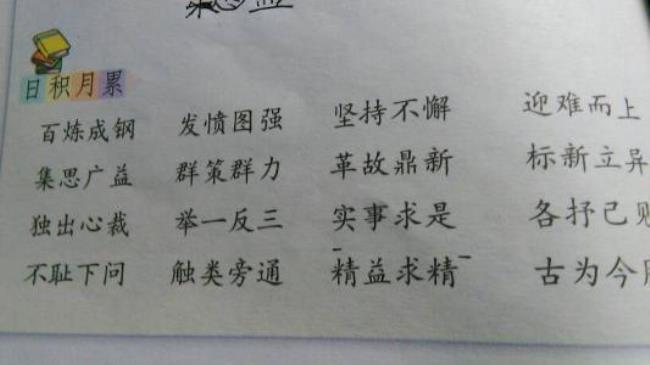 日积月累
百炼成钢 发愤图强 坚持不懈 迎难而上
集思广益 群策群力 革故鼎新 标新立异
独出心裁 举一反三 实事求是 各抒己
不耻下问 触类旁通 精益求精 古为今